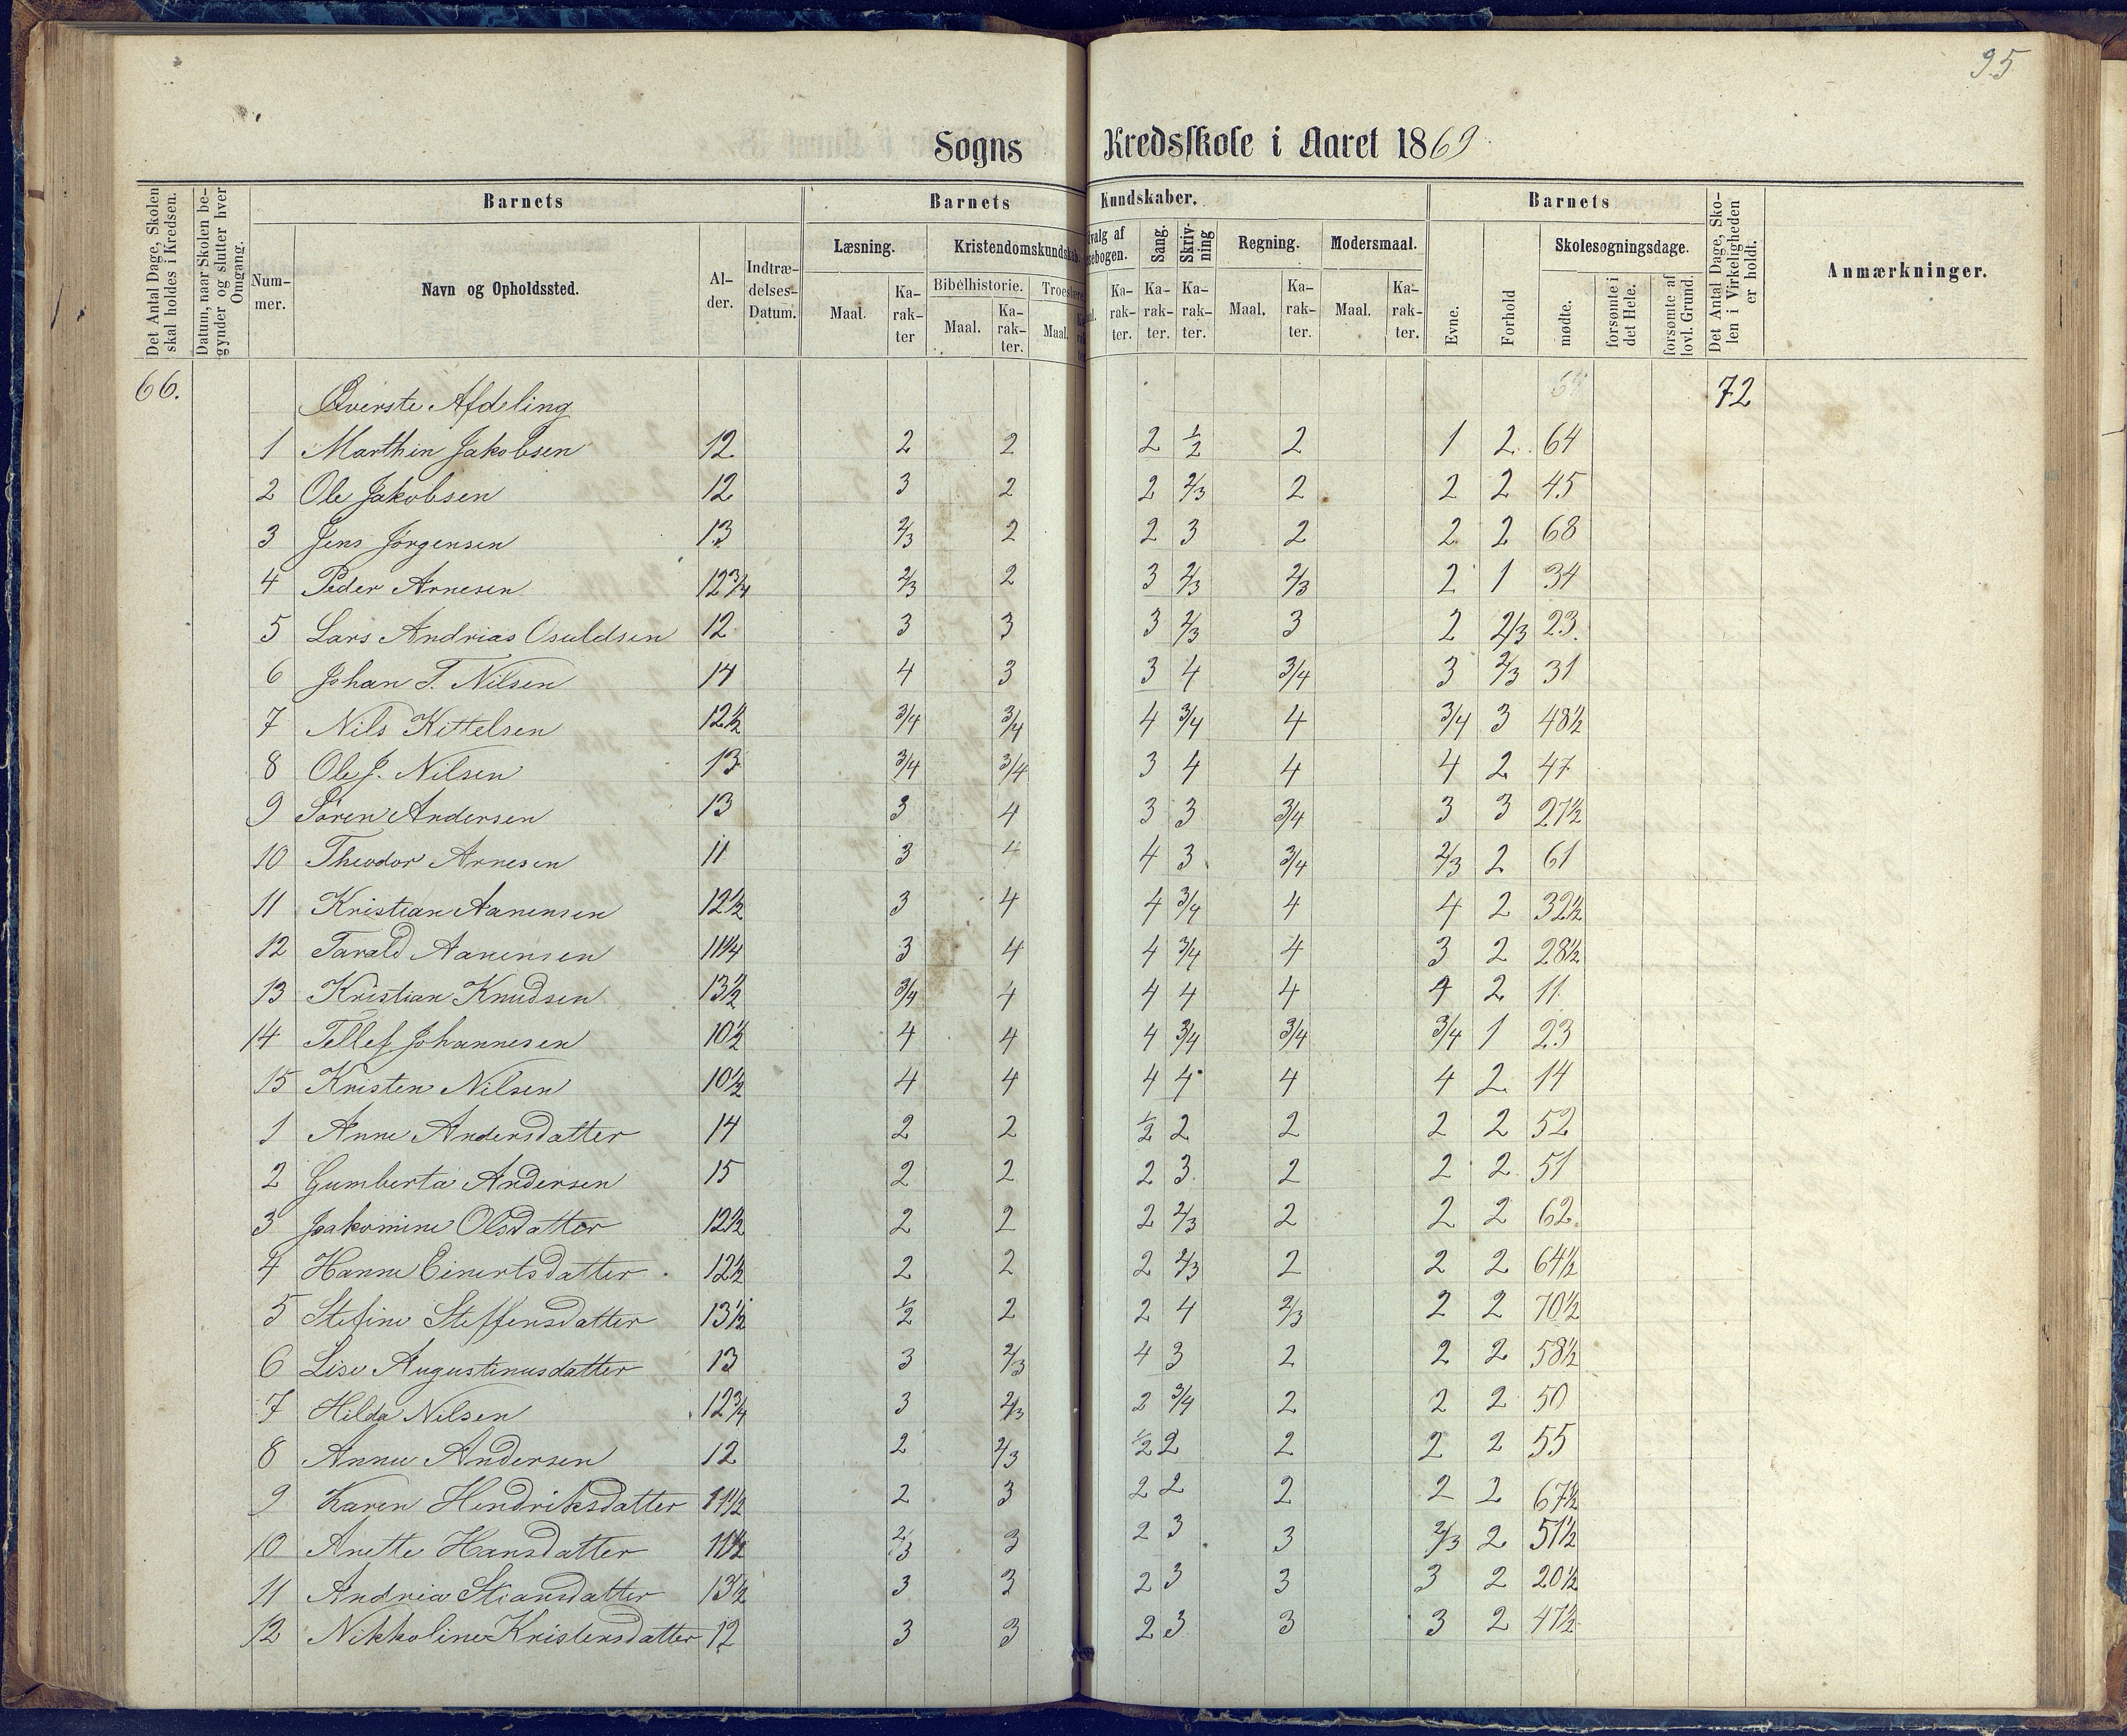 95
Sogns Kredsskole i Aaret 1869
Det Antal Dage, Skolen skal holdes i Kredsen.
Datum, naar Skolen begynder og slutter hver Omgang.
Barnets
Nummer.
Navn og Opholdssted.
Alder.
Indtrædelses-Datum.
Barnets Kundskaber.
Læsning.
Maal.
Karakter
Kristendomskundskab.
Bibelhistorie.
Maal.
Karakter.
Maal.
Karakter.
Sang.
Karakter.
Skrivning
Karakter.
Regning.
Maal.
Karakter.
Modersmaal.
Maal.
Karakter.
Barnets
Evne.
Forhold
Skolesøgningsdage.
mødte.
forsømte i det Hele.
forsømte af lovl. Grund.
Det Antal Dage, Skolen i Virkeligheden er holdt.
Anmærkninger.
66. Øverste Afdeling 72
1 Marthin Jakobsen 12 2 2 2 1/2 2 1 2 64
2 Ole Jakobsen 12 3 2 2 2/3 2 2 2 45
3 Jens Jørgensen 13 2/3 2 2 3 2 2 2 68
4 Peder Arnesen 12 3/4 2/3 2 3 2/3 2/3 2 1 34
5 Lars Andrias Osuldsen 12 3 3 3 2/3 3 2 2/3 23.
6 Johan T. Nilsen 14 4 3 3 4 3/4 3 2/3 31
7 Nils Kittelsen 12 1/2 3/4 3/4 4 3/4 4 3/4 3 48 1/2
8 Ole J. Nilsen 13 3/4 3/4 3 4 4 4 2 47
9 Søren Andersen 13 3 4 3 3 3/4 3 3 27 1/2
10 Theodor Arnesen 11 3 4 4 3 3/4 2/3 2 61
11 Kristian Aanensen 12 1/2 3 4 4 3/4 4 4 2 32 1/2
12 Tarald Aanensen 11 1/4 3 4 4 3/4 4 3 2 28 1/2
13 Kristian Knudsen 13 1/2 3/4 4 4 4 4 4 2 11
14 Tellef Johannesen 10 1/2 4 4 4 3/4 3/4 3/4 1 23
15 Kristen Nilsen 10 1/2 4 4 4 4 4 4 2 14
1 Anne Andersdatter 14 2 2 1/2 2 2 2 2 52
2 Gumberta Andersen 15 2 2 2 3 2 2 2 51
3 Jakomine Olsdatter 12 1/2 2 2 2 2/3 2 2 2 62.
4 Hanne Einertsdatter 12 1/2 2 2 2 2/3 2 2 2 64 1/2
5 Stefine Steffensdatter 13 1/2 1/2 2 2 4 2/3 2 2 70 1/2
6 Lise Augustinusdatter 13 3 2/3 4 3 2 2 2 58 1/2
7 Hilda Nilsen 12 3/4 3 2/3 2 3/4 2 2 2 50
8 Anne Andersen 12 2 2/3 1/2 2 2 2 2 55
9 Karen Hendriksdatter 11 1/2 2 3 2 2 2 2 2 67 1/2
10 Anette Hansdatter 11 1/2 2/3 3 2 3 3 2/3 2 51 1/2
11 Andrea Stiansdatter 13 1/2 3 3 2 3 3 3 2 20 1/2
12 Nikkoline Kristensdatter 12 3 3 2 3 3 3 2 47 1/2